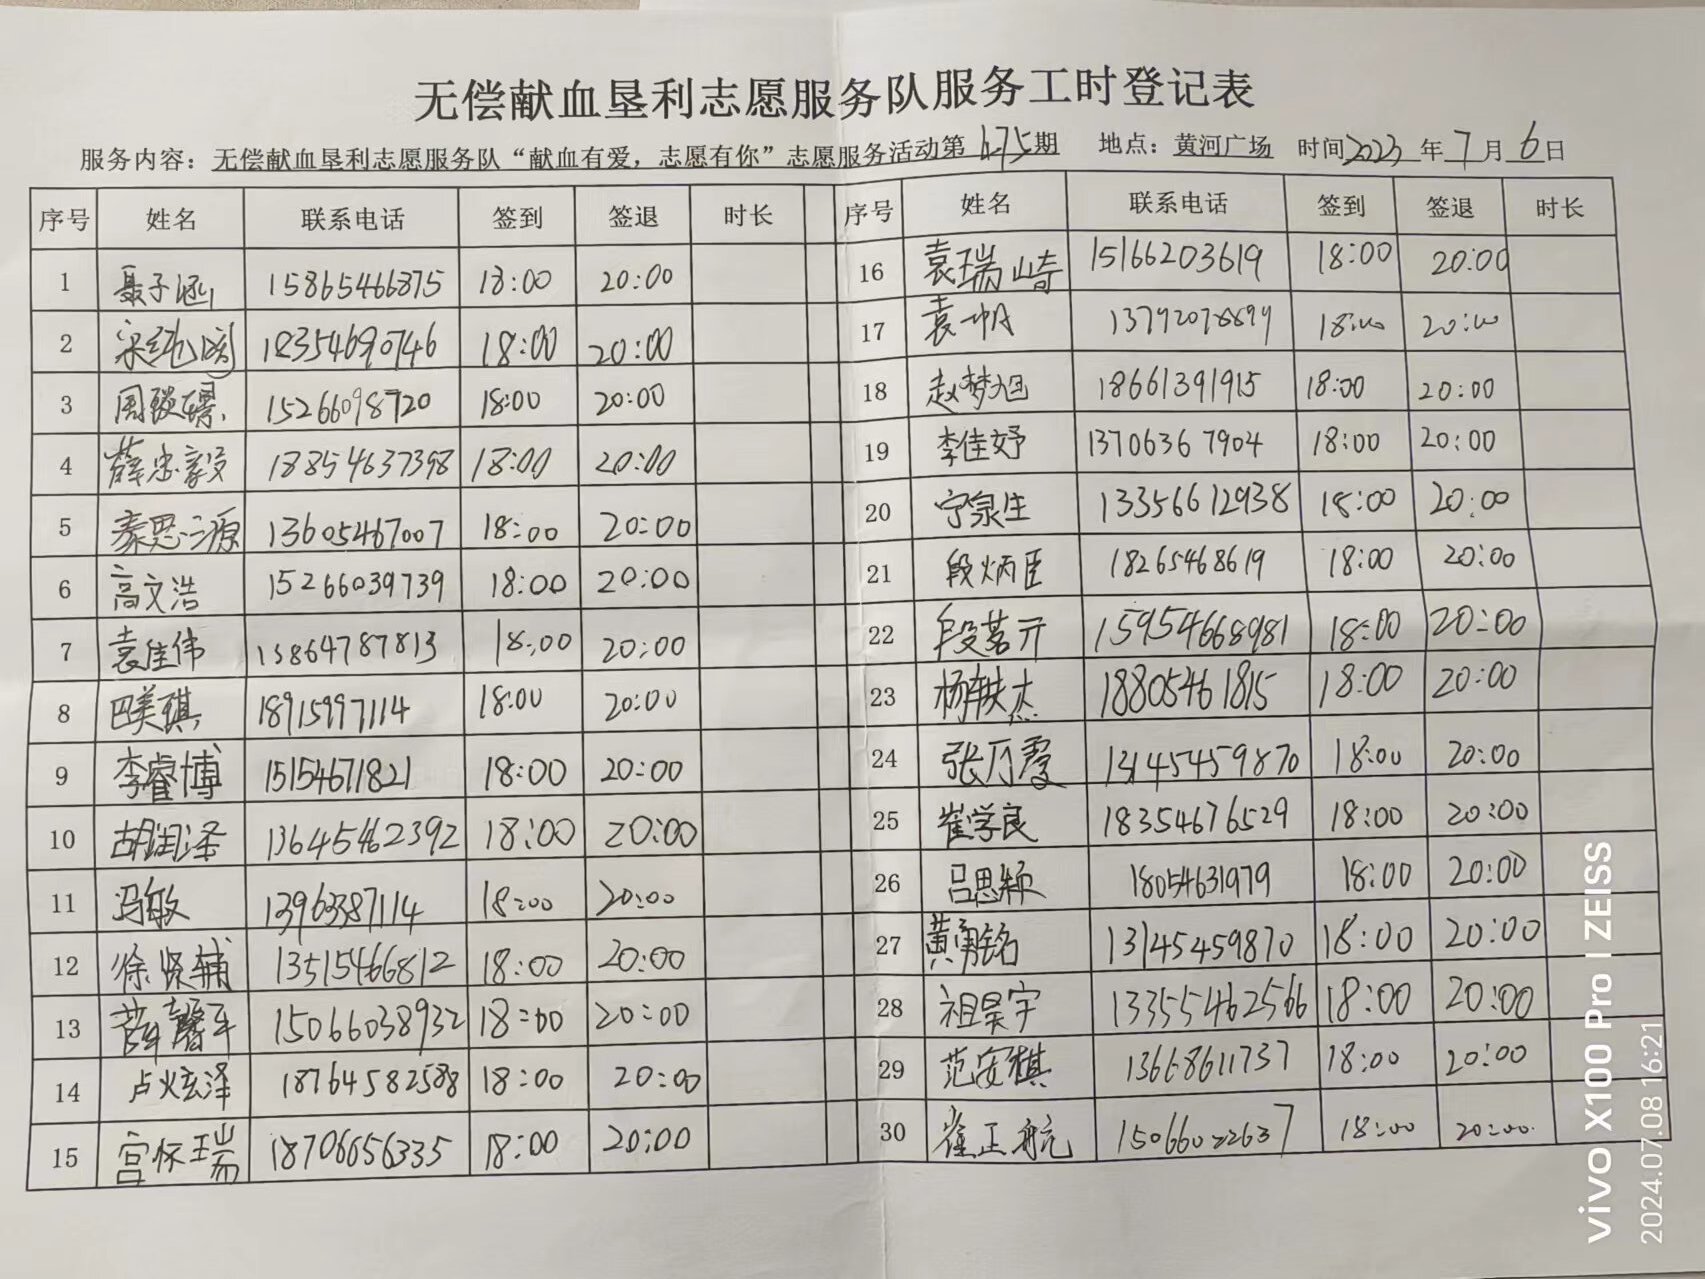 无偿献血垦利志愿服务队服务工时登记表
服务内容：无偿献血垦利志愿服务队“献血有爱，志愿有你”志愿服务活动第675期 地点：黄河广场 时间2023年7月6日
序号 姓名 联系电话 签到 签退 时长 序号 姓名 联系电话 签到 签退 时长
1 聂子涵 15865466875 18:00 20:00
2 18354690746 18:00 20:00
3 周 15266098720 18:00 20:00
4 薛忠毅 18854637398 18:00 20:00
5 秦思源 13605467007 18:00 20:00
6 高文浩 15266039739 18:00 20:00
7 袁佳伟 15864787813 18:00 20:00
8 巴美琪 18915997114 18:00 20:00
9 李睿博 15154671821 18:00 20:00
10 胡润泽 13645462392 18:00 20:00
11 冯敏 13963387114 18:00 20:00
12 徐贤辅 13515466812 18:00 20:00
13 薛馨平 15066038932 18:00 20:00
14 卢炫泽 18764582588 18:00 20:00
15 宫怀瑞 18706656335 18:00 20:00
16 袁瑞崎 15166203619 18:00 20:00
17 袁帅 18:00 20:00
18 赵梦旭 18661391915 18:00 20:00
19 李佳妤 13706367904 18:00 20:00
20 宁泉生 13356612938 18:00 20:00
21 段炳臣 18265468619 18:00 20:00
22 段茗亓 15954668981 18:00 20:00
23 杨轶杰 18805461815 18:00 20:00
24 张乃霞 13145459870 18:00 20:00
25 崔学良 18354676529 18:00 20:00
26 吕思颖 18054631979 18:00 20:00
27 黄勇铭 13145459870 18:00 20:00
28 祖昊宇 13355462566 18:00 20:00
29 范安棋 13668611737 18:00 20:00
30 崔正航 15066022637 18:00 20:00
vivo X100 Pro | ZEISS
2024.07.08 16:21